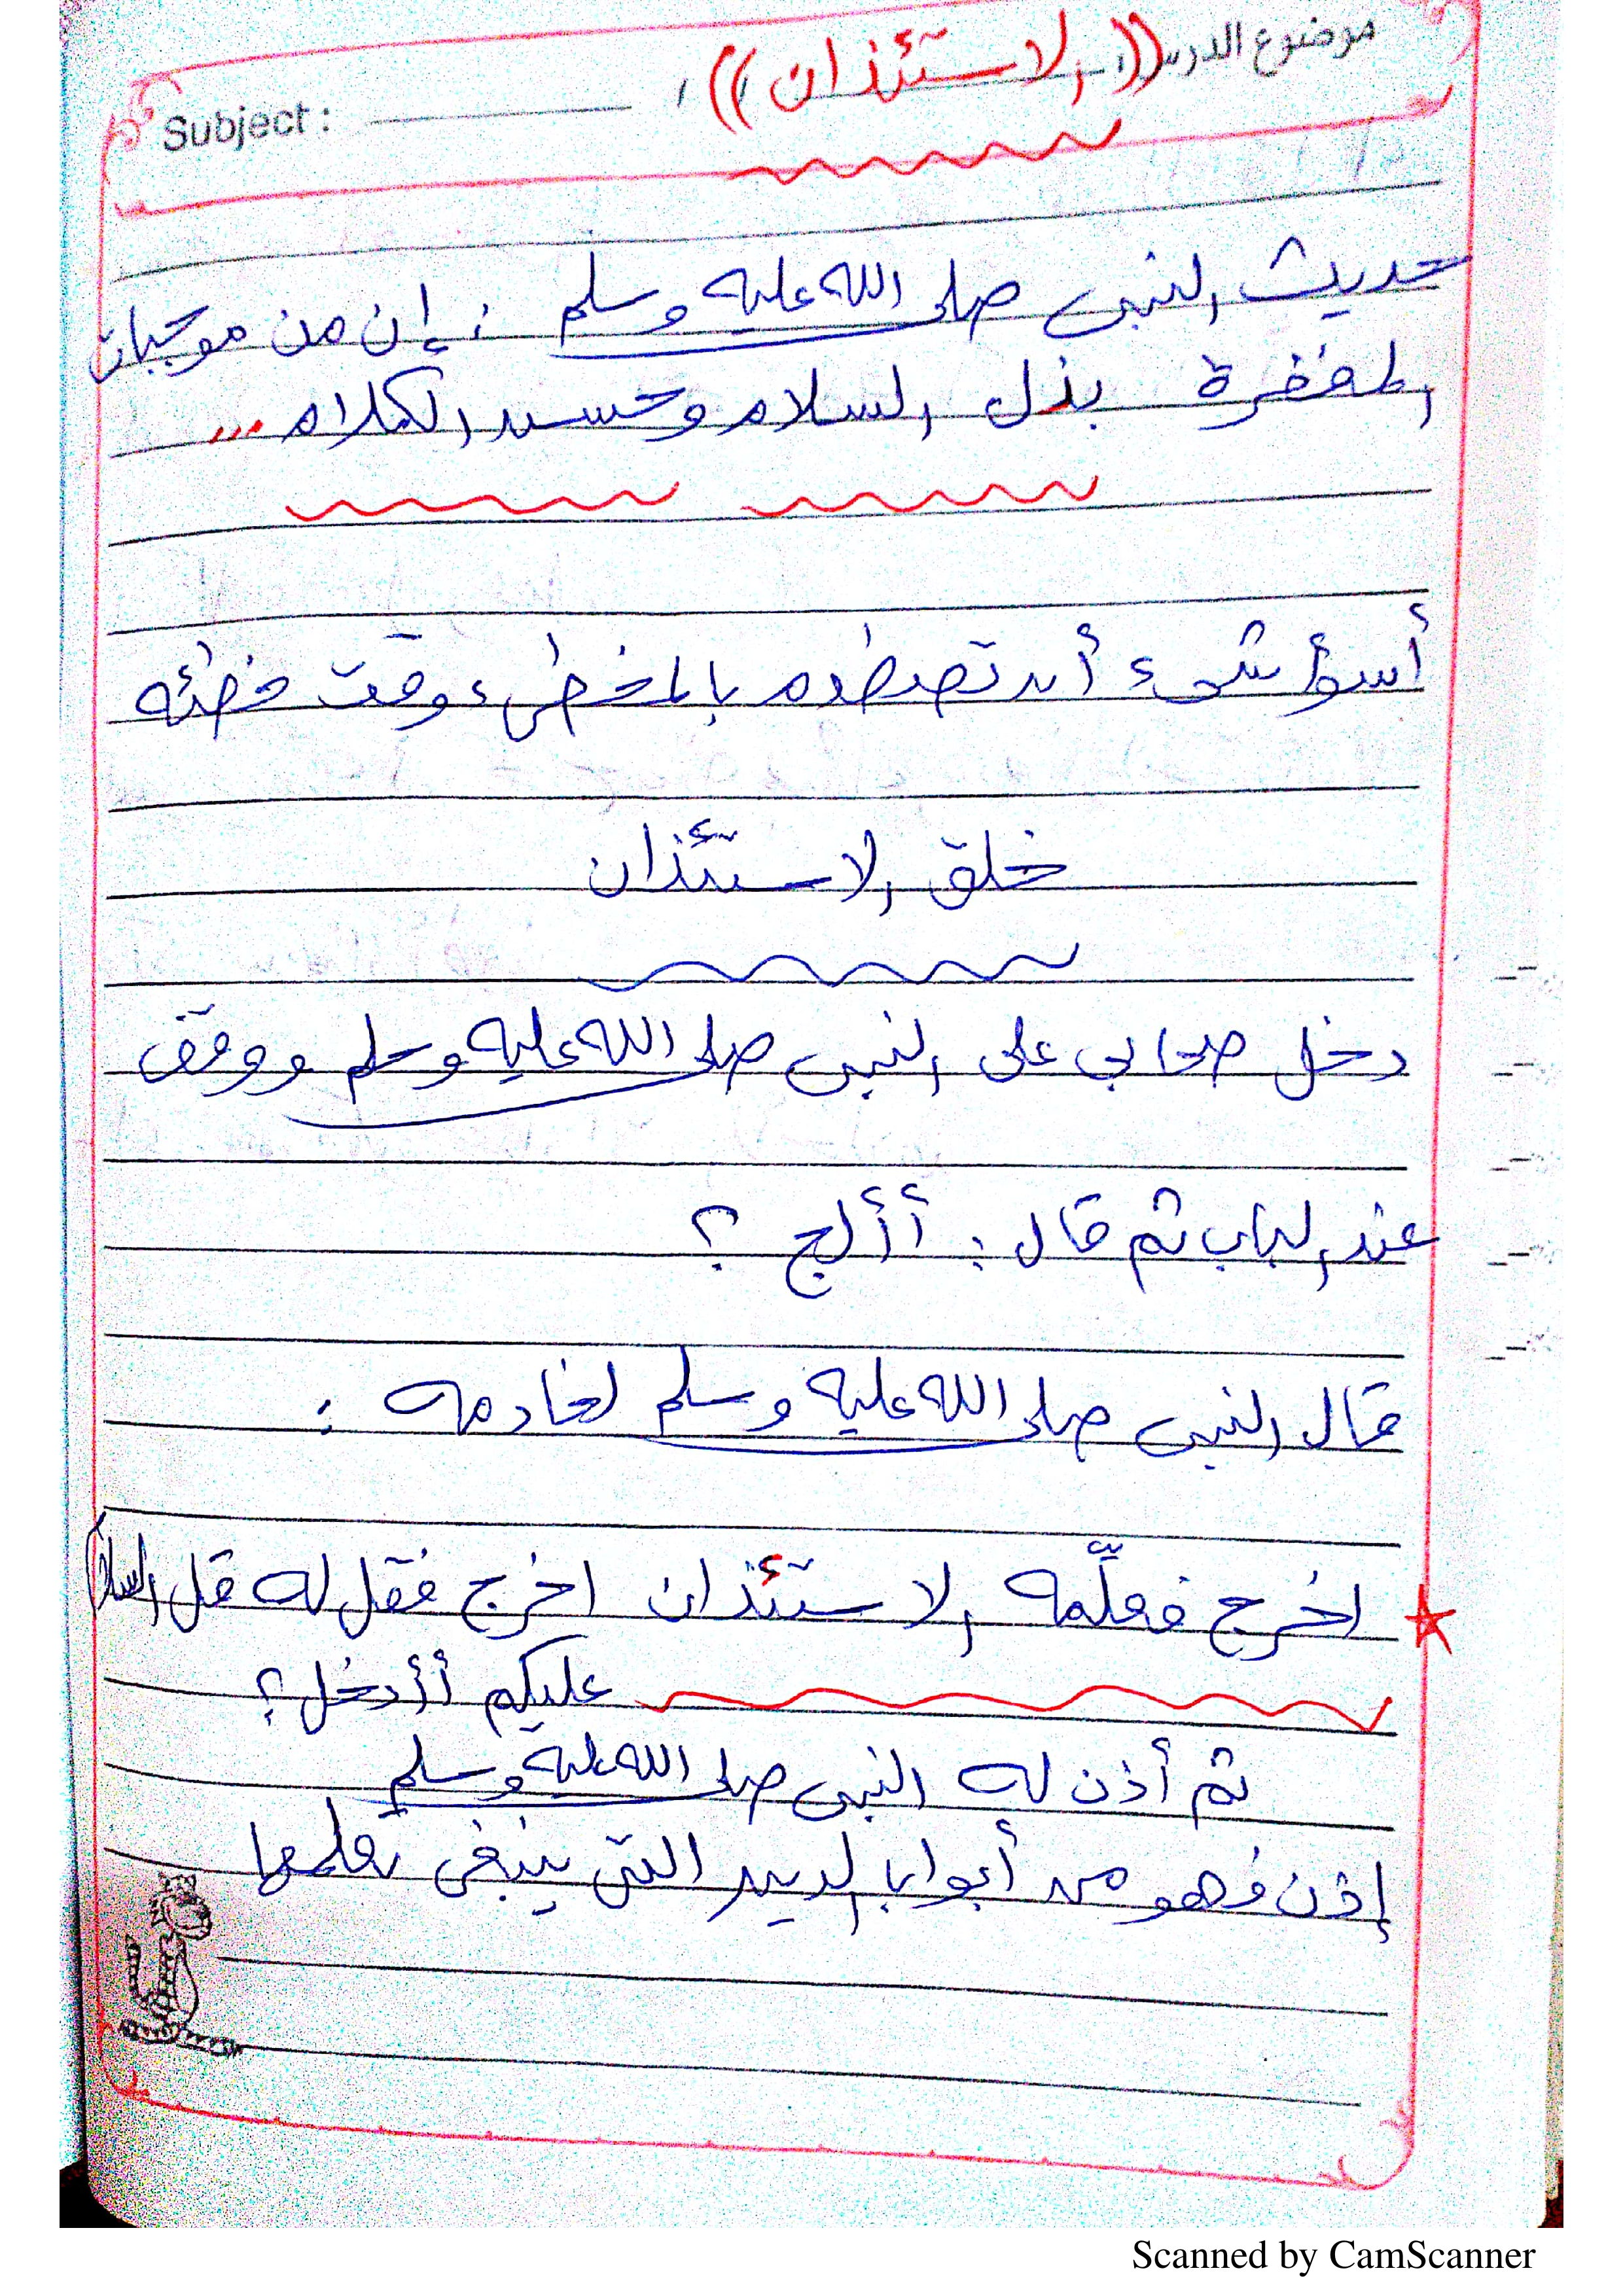 موضوع الدرس: ((الاستئذان))
Subject :
حديث النبي صلى الله عليه وسلم : إن من موجبات
المغفرة بذل السلام وحسن الكلام ...
أسوأ شيء أن تصطدم بالمخطىء وقت خطئه
خلق الاستئذان
دخل صحابي على النبي صلى الله عليه وسلم ووقف
عند الباب ثم قال : أألج ؟
قال النبي صلى الله عليه وسلم لخادمه :
اخرج فعلّمه الاستئذان اخرج فقل له قل السلام
عليكم أأدخل؟
ثم أذن له النبي صلى الله عليه وسلم
إذن فهو من أبواب الدين التي ينبغي تعلمها
Scanned by CamScanner